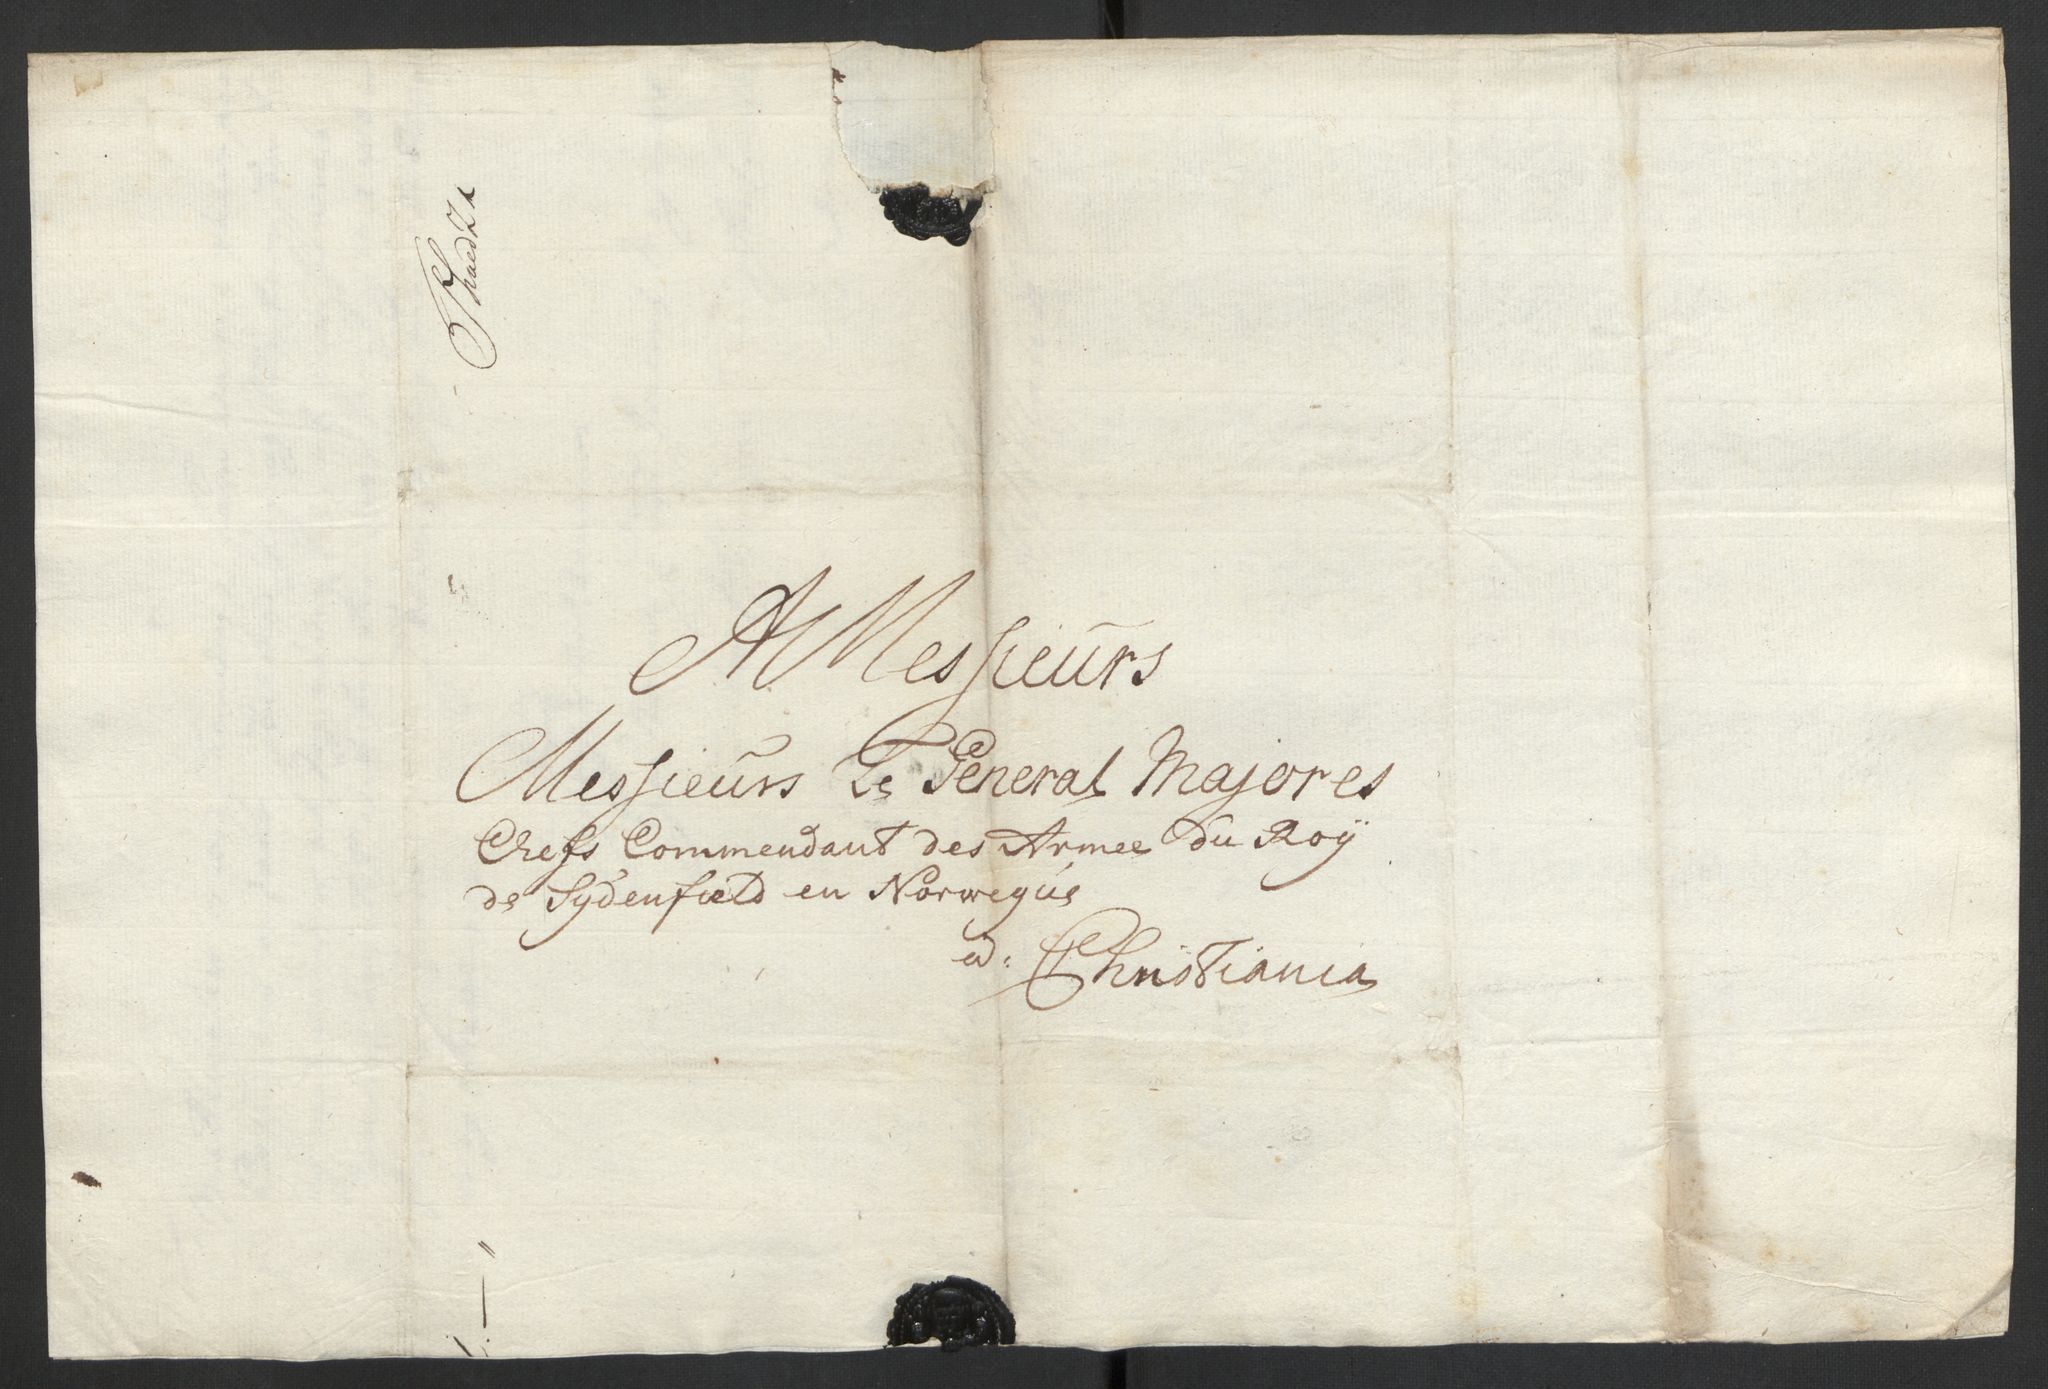 A Messieurs
Messieurs Le General Majores
Chefs Commendant des Armee du Roÿ
de Sydenfield en Norwegue
a: Christiania